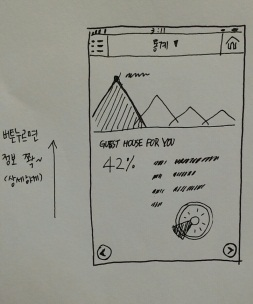 3:11
통계
버튼누르면
정보 쫙~
(상세하게)
GUEST HOUSE FOR YOU
42%